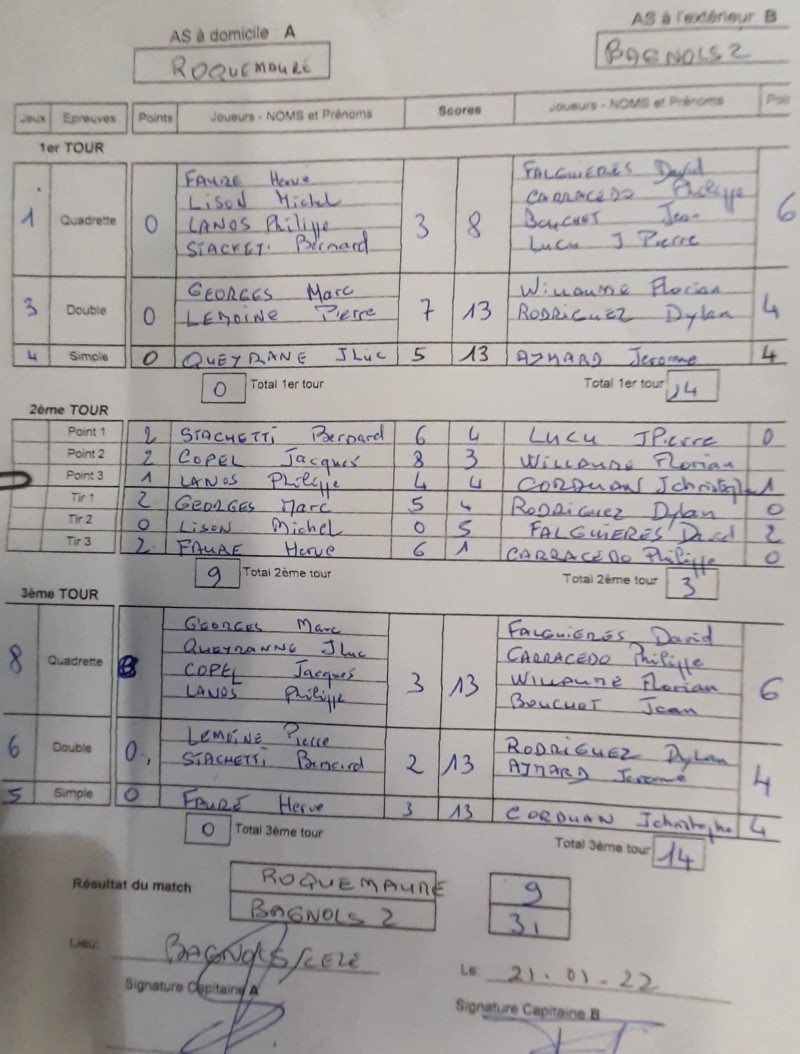 AS à domicile : A
AS à l'extérieur B
ROQUEMAURE
BAGNOLS 2
Jeux Epreuves Points Joueurs - NOMS et Prénoms Scores Joueurs - NOMS et Prénoms Poin
1er TOUR
1 Quadrette 0 3 8 6
FAURE Herve FALGUIERES David
LISON Michel CARRACEDO Philippe
LANOS Philippe BOUCHOT Jean
STACHETTI Bernard LUCU J Pierre
3 Double 0 7 13 4
GEORGES Marc WILLAUME Florian
LEMOINE Pierre RODRIGUEZ Dylan
4 Simple 0 QUEYRANE JLuc 5 13 AZMARD Jerome 4
0 Total 1er tour Total 1er tour 14
2ème TOUR
Point 1 2 STACHETTI Bernard 6 4 LUCU JPierre 0
Point 2 2 COPEL Jacques 8 3 WILLAUME Florian
Point 3 1 LANOS Philippe 4 4 CORDUAN Jchristophe 1
Tir 1 2 GEORGES Marc 5 4 RODRIGUEZ Dylan 0
Tir 2 0 LISON Michel 0 5 FALGUIERES David 2
Tir 3 2 FAURE Herve 6 1 CARRACEDO Philippe 0
9 Total 2ème tour Total 2ème tour 3
3ème TOUR
8 Quadrette 3 13 6
GEORGES Marc FALGUIERES David
QUEYRANNE JLuc CARRACEDO Philippe
COPEL Jacques WILLAUME Florian
LANOS Philippe BOUCHOT Jean
6 Double 0 2 13 4
LEMOINE Pierre RODRIGUEZ Dylan
STACHETTI Bernard AZMARD Jerome
5 Simple 0 FAURE Herve 3 13 CORDUAN Jchristophe 4
0 Total 3ème tour Total 3ème tour 14
Résultat du match ROQUEMAURE 9
BAGNOLS 2 31
Lieu: BAGNOLS/CEZE Le: 21.01.22
Signature Capitaine A Signature Capitaine B